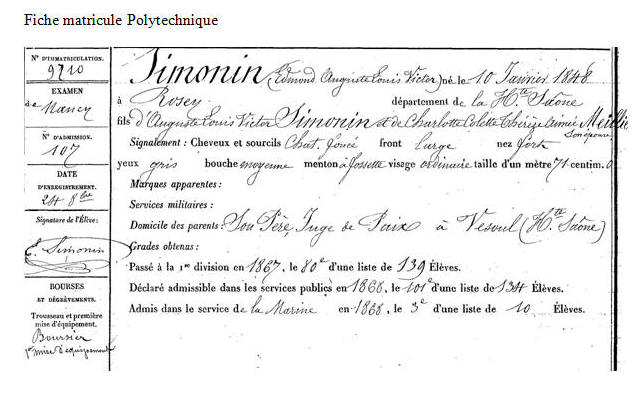 Fiche matricule Polytechnique
N° D'IMMATRICULATION.
9710
EXAMEN
de Nancy
N° D'ADMISSION.
107
DATE
D'ENREGISTREMENT.
24 8bre
Signature de l'Élève:
E. Simonin
BOURSES
ET DÉGRÈVEMENTS.
Trousseau et première
mise d'équipement.
Boursier
1re mise d'équipement
Simonin (Edmond Auguste Louis Victor) né le 10 Janvier 1848
à Rosey département de la Hte Saône
fils d'Auguste Louis Victor Simonin et de Charlotte Colette Thérèze Aimée
Son épouse
Signalement : Cheveux et sourcils Chat. foncé front large nez fort
yeux gris bouche moyenne menton à fossette visage ordinaire taille d'un mètre 71 centim.
Marques apparentes :
Services militaires :
Domicile des parents : Son Père, Juge de Paix à Vesoul (Hte Saône)
Grades obtenus :
Passé à la 1re division en 1867, le 80e d'une liste de 139 Élèves.
Déclaré admissible dans les services publics en 1868, le 101e d'une liste de 134 Élèves.
Admis dans le service de la Marine en 1868, le 3e d'une liste de 10 Élèves.